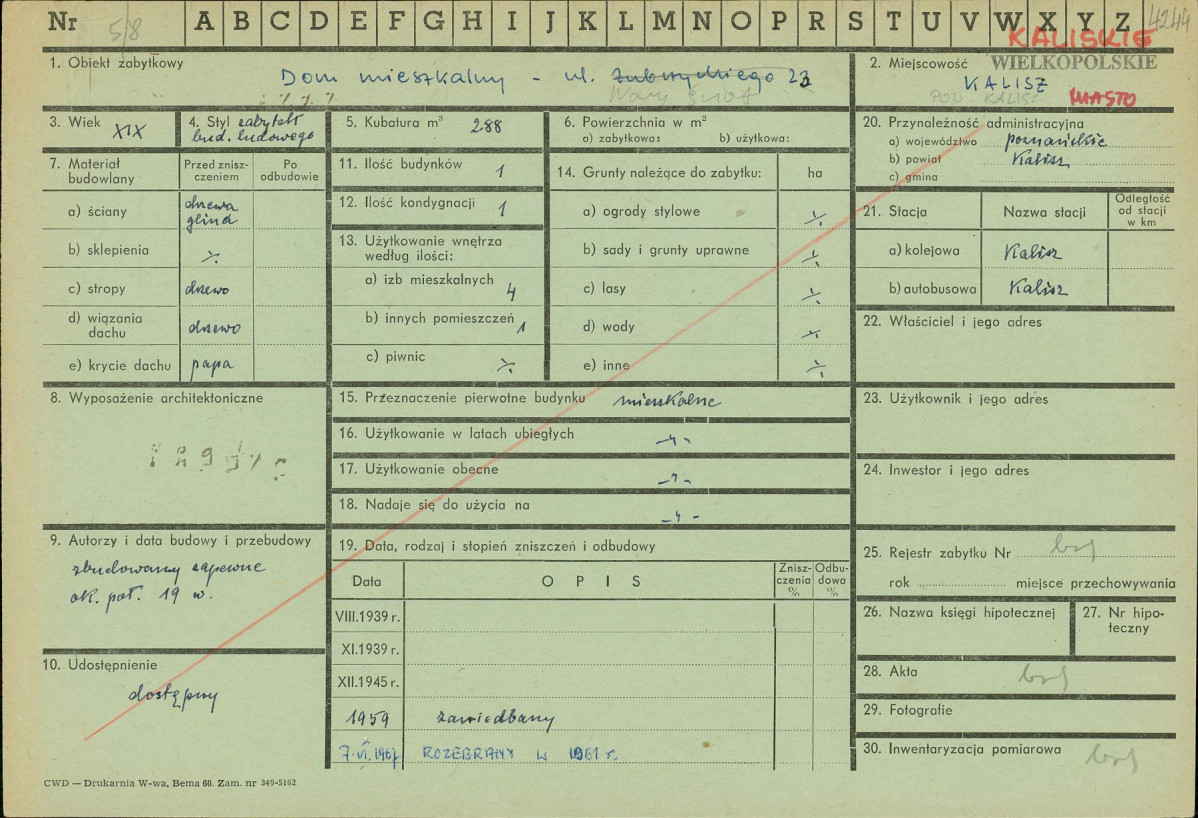 Nr 5/8 A B C D E F G H I J K L M N O P R S T U V W X Y Z 4244
KALISKIE
1. Obiekt zabytkowy
Dom mieszkalny - ul. 23
2. Miejscowość WIELKOPOLSKIE
KALISZ
POW. KALISZ MIASTO
3. Wiek XIX
4. Styl zabytek
bud. ludowego
5. Kubatura m³ 288
6. Powierzchnia w m²
a) zabytkowa: b) użytkowa:
7. Materiał
budowlany
Przed znisz-
czeniem
Po
odbudowie
a) ściany drzewo
glina
b) sklepienia ./.
c) stropy drzewo
d) wiązania
dachu drzewo
e) krycie dachu papa
8. Wyposażenie architektoniczne
9. Autorzy i data budowy i przebudowy
zbudowany zapewne
ok. poł. 19 w.
10. Udostępnienie
dostępny
11. Ilość budynków 1
12. Ilość kondygnacji 1
13. Użytkowanie wnętrza
według ilości:
a) izb mieszkalnych 4
b) innych pomieszczeń 1
c) piwnic ./.
14. Grunty należące do zabytku: ha
a) ogrody stylowe ./.
b) sady i grunty uprawne ./.
c) lasy ./.
d) wody ./.
e) inne ./.
15. Przeznaczenie pierwotne budynku mieszkalne
16. Użytkowanie w latach ubiegłych -"-
17. Użytkowanie obecne -"-
18. Nadaje się do użycia na -"-
19. Data, rodzaj i stopień zniszczeń i odbudowy
Data OPIS
Znisz-
czenia
%
Odbu-
dowa
%
VIII.1939 r.
XI.1939 r.
XII.1945 r.
1959 zaniedbany
7.VI.1967 ROZEBRANY W 1961 r.
20. Przynależność administracyjna
a) województwo poznańskie
b) powiat Kalisz
c) gmina
21. Stacja Nazwa stacji
Odległość
od stacji
w km
a) kolejowa Kalisz
b) autobusowa Kalisz
22. Właściciel i jego adres
23. Użytkownik i jego adres
24. Inwestor i jego adres
25. Rejestr zabytku Nr
rok miejsce przechowywania
26. Nazwa księgi hipotecznej
27. Nr hipo-
teczny
28. Akta
29. Fotografie
30. Inwentaryzacja pomiarowa
CWD — Drukarnia W-wa, Bema 60. Zam. nr 349-5162